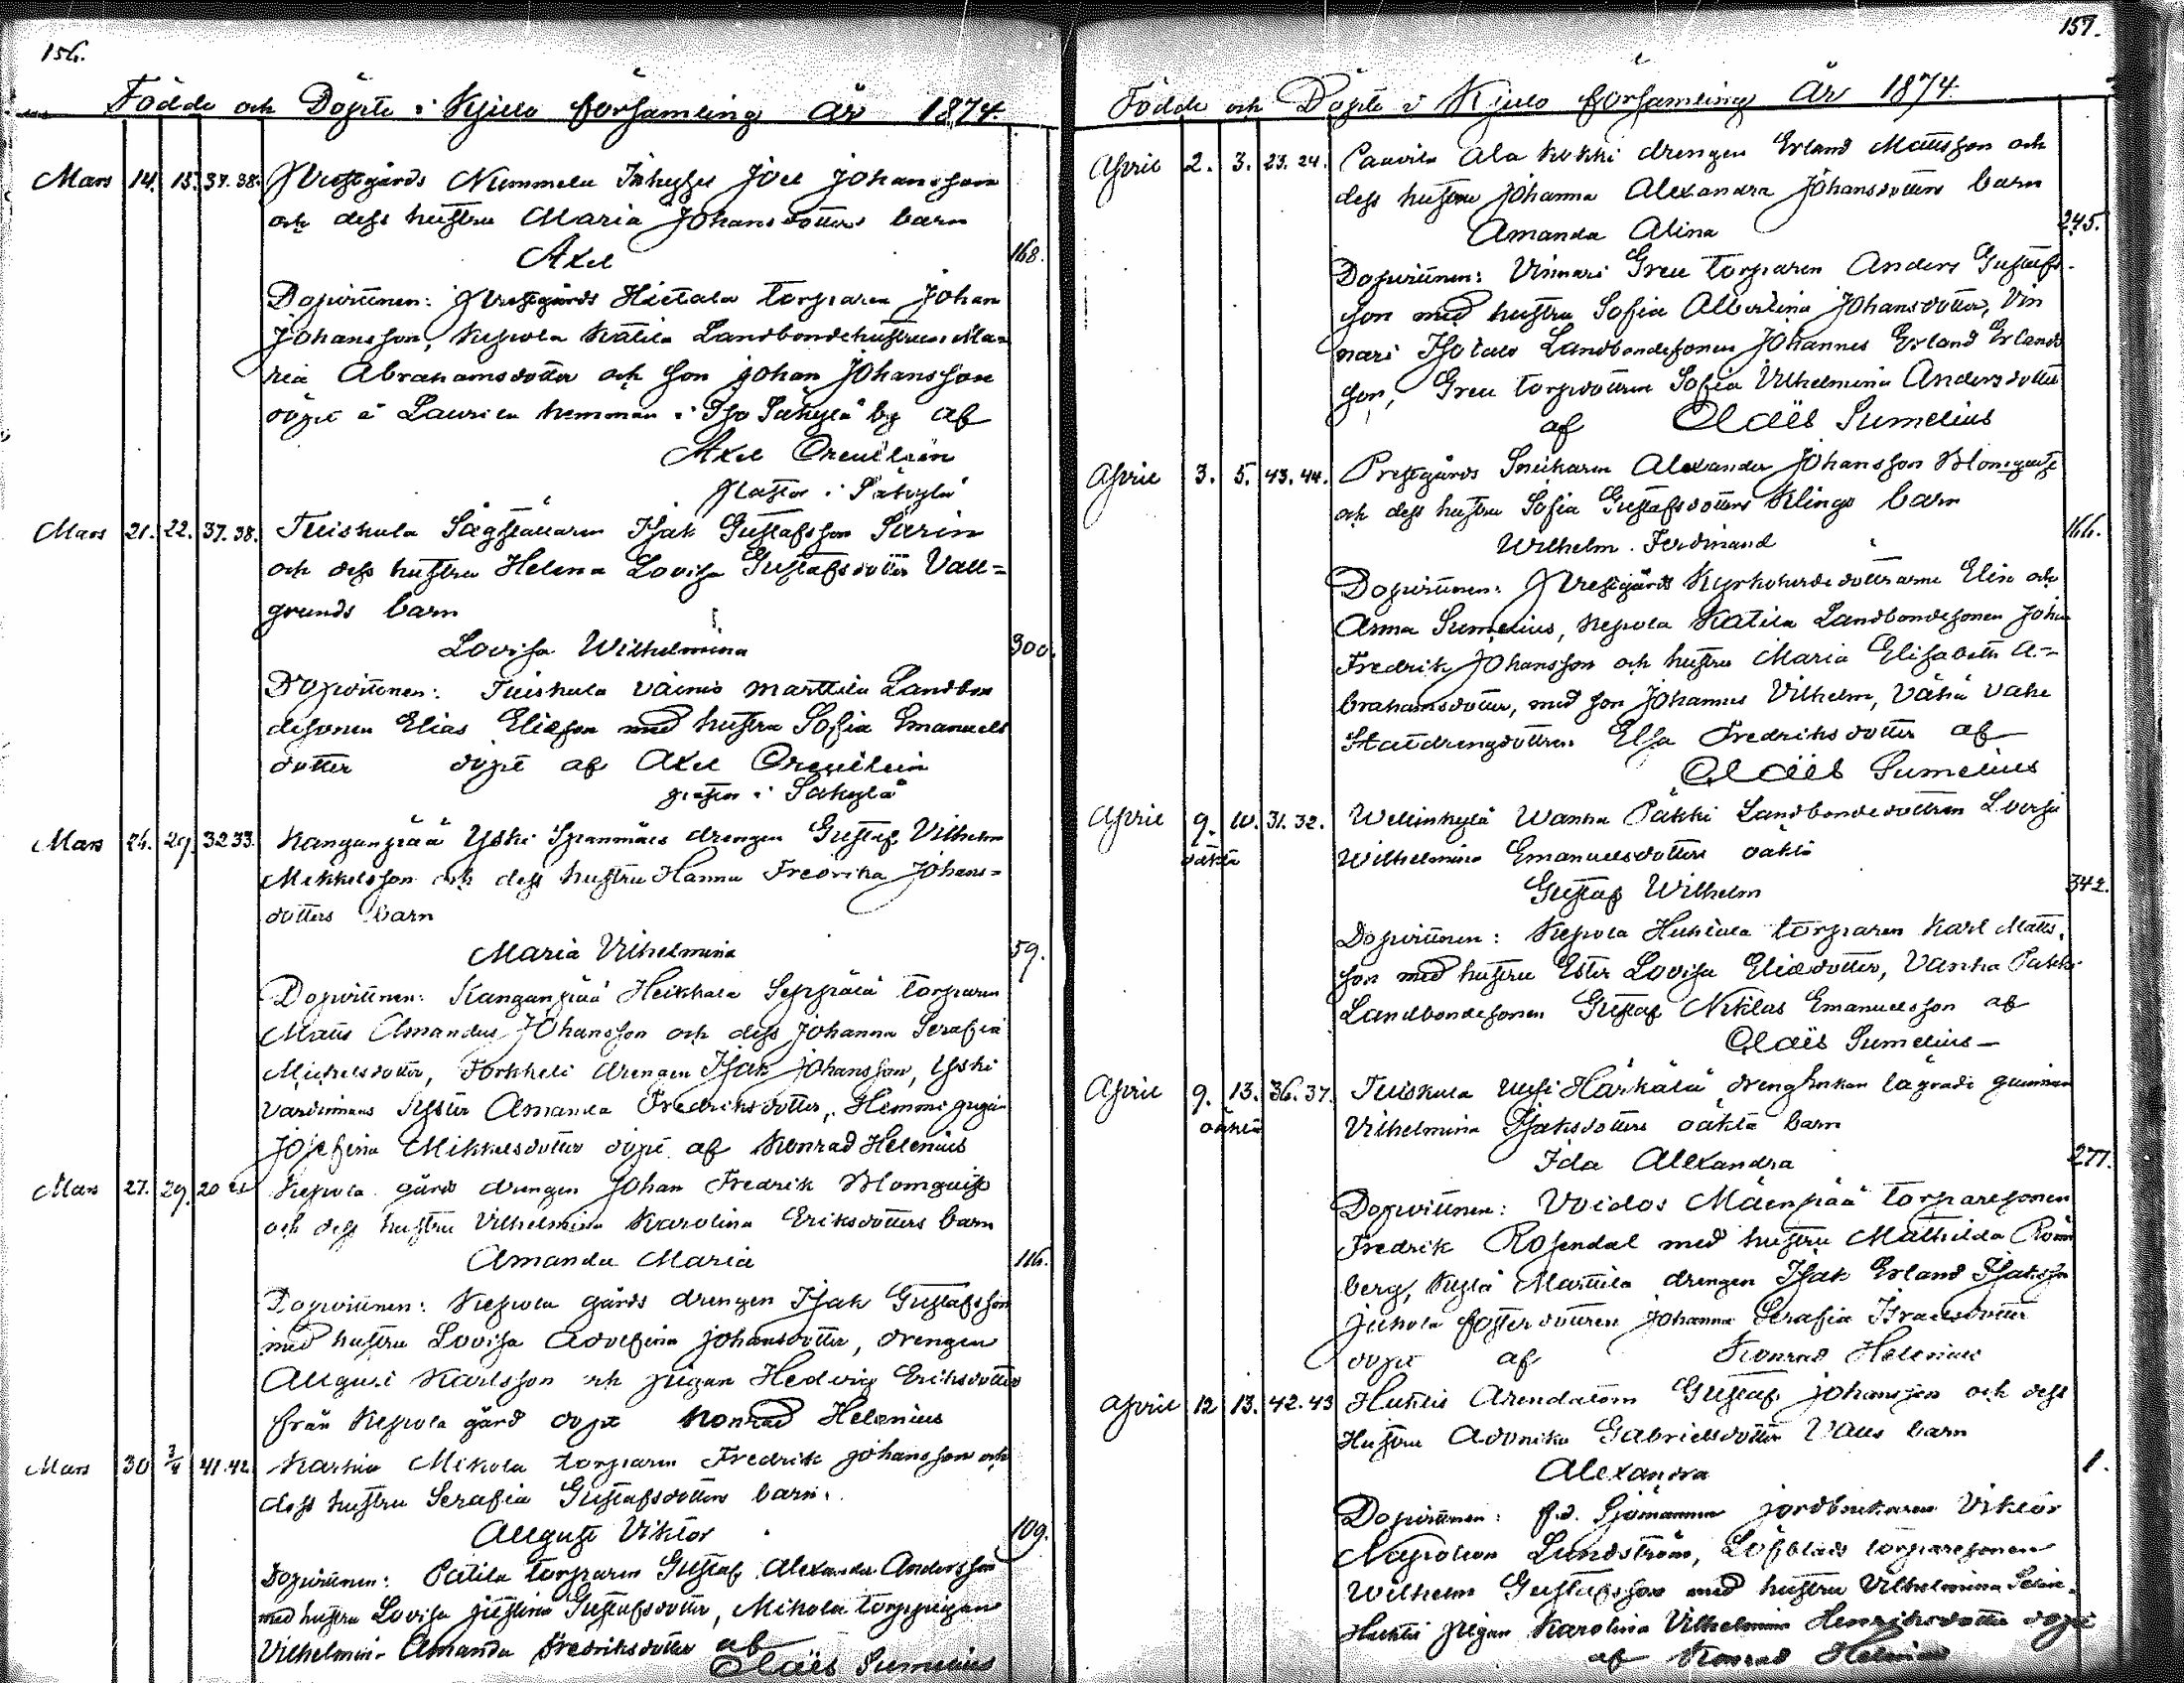 156.
Födde och Döpte i Kjulo församling år 1874.
Mars 14. 15. 37.38. Prestgårds Nummela Inhyses Joel Johansson
och dess hustru Maria Johansdotters barn
Axel 168.
Dopvittnen: Prestgårds Hietala torparen Johan
Johansson, Kepola Katila Landbondehustrun Ma=
ria Abrahamsdotter och son Johan Johansson
döpt å Laurila hemman i Iso Säkylä by af
Axel
Pastor i Säkylä
Mars 21. 22. 37.38. Tuiskula Sågställaren Isak Gustafsson Sarin
och dess hustru Helena Lovisa Gustafsdotter Vall=
grunds barn
Lovisa Wilhelmina 300.
Dopvittnen: Tuiskula Vainio Marttila Landbon
desonen Elias Eliasson med hustru Sofia Emanuels
dotter döpt af Axel
pastor i Säkylä
Mars 24. 29. 32 33. Kanganpää Yski Spanmäes drengen Gustaf Vilhelm
Mikkelsson och dess hustru Hanna Fredrika Johans=
dotters barn
Maria Vilhelmina 59.
Dopvittnen: Kanganpää Heikkala Seppälä torparen
Matts Amandus Johansson och dess Johanna Serafia
Michelsdotter, Torkkeli drengen Isak Johansson, Yski
värdinnans syster Amanda Fredriksdotter, Hemmi pigan
Josefina Mikkelsdotter döpt af Konrad Helenius
Mars 27. 29. 20 21 Kepola gårds drengen Johan Fredrik Blomquist
och dess hustru Vilhelmina Karolina Eriksdotters barn
Amanda Maria 116.
Dopvittnen: Kepola gårds drengen Isak Gustafsson
med hustru Lovisa Adolfina Johansdotter, drengen
August Karlsson och pigan Hedvig Eriksdotter
från Kepola gård döpt Konrad Helenius
Mars 30 3/4 41.42. Karhia Mikola torparen Fredrik Johansson och
dess hustru Serafia Gustafsdotters barn.
August Viktor 109.
Dopvittnen: Pätilä torparen Gustaf Alexander Andersson
med hustru Lovisa Justina Gustafsdotter, Mikola torppigan
Vilhelmina Amanda Fredriksdotter af
Claës Sumelius
157.
Födde och Döpte i Kjulo församling år 1874.
April 2. 3. 23. 24. Paavila Ala Kokki drengen Erland Mattsson och
dess hustru Johanna Alexandra Johansdotters barn
Amanda Alina 245.
Dopvittnen: Vinnari Greu torparen Anders Gustafs-
son med hustru Sofia Albertina Johansdotter, Vin
nari Isotalo Landbondesonen Johannes Erland Erlands
son, Greu torpdottren Sofia Vilhelmina Andersdotter
af Claës Sumelius
April 3. 5. 43. 44. Prestgårds Snickaren Alexander Johansson Blomquist
och dess hustru Sofia Gustafsdotters Klings barn
Wilhelm Ferdinand 166.
Dopvittnen: Prestgårds Kyrkoherde döttrarne Elin och
Anna Sumelius, Kepola Katila Landbondesonen Johan
Fredrik Johansson och hustru Maria Elisabeth A=
brahamsdotter, med son Johannes Vilhelm, Vähä Vahe
Statdrengdottren Elsa Fredriksdotter af
Claës Sumelius
April 9. 10. 31. 32. Wellinkylä Wanha Päkki Landbondedottren Lovisa
oäkta Wilhelmina Emanuelsdotters oäkta
Gustaf Wilhelm 342.
Dopvittnen: Kepola Huhtala torparen Karl Matts-
son med hustru Ester Lovisa Eliædotter, Vanha Päkki
Landbondesonen Gustaf Niklas Emanuelsson af
Claës Sumelius
April 9. 13. 36. 37. Tuiskula Uusi Härkälä drengEnkan lägrade qvinnan
oäkta Vilhelmina Isaksdotters oäkta barn
Ida Alexandra 277.
Dopvittnen: Voidos Mäenpää torparesonen
Fredrik Rosendal med hustru Mathilda
berg, Kylä Marttila drengen Isak Erland Isaksson
Juhola fosterdottren Johanna Serafia Israelsdotter
döpt af Konrad Helenius
April 12 13. 42. 43 Huhtis Arendatorn Gustaf Johansson och dess
Hustru Adonika Gabrielsdotter Valls barn
Alexandra 1.
Dopvittnen: f.d. Sjömannen jordbrukaren Viktor
Napoleon Lundström, Löfblads torparesonen
Wilhelm Gustafsson med hustru Vilhelmina
Huhtis pigan Karolina Vilhelmina Henriksdotter döpt
af Konrad Helenius